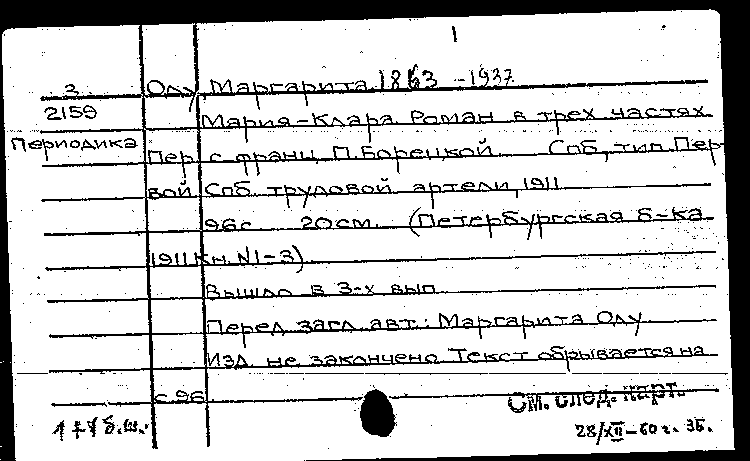 1
3 Оду, Маргарита. 1863-1937.
2159 Мария-Клара. Роман в трех частях.
Периодика Пер. с франц. П. Борецкой. Спб, тип. Пер-
вой Спб. трудовой артели, 1911
96 с. 20 см. (Петербургская б-ка
1911 Кн. N1-3)
Вышло в 3-х вып.
Перед загл. авт.: Маргарита Оду
Изд. не закончено Текст обрывается на
с. 96.
См. след. карт.
28/XII-60 г. ЗБ.